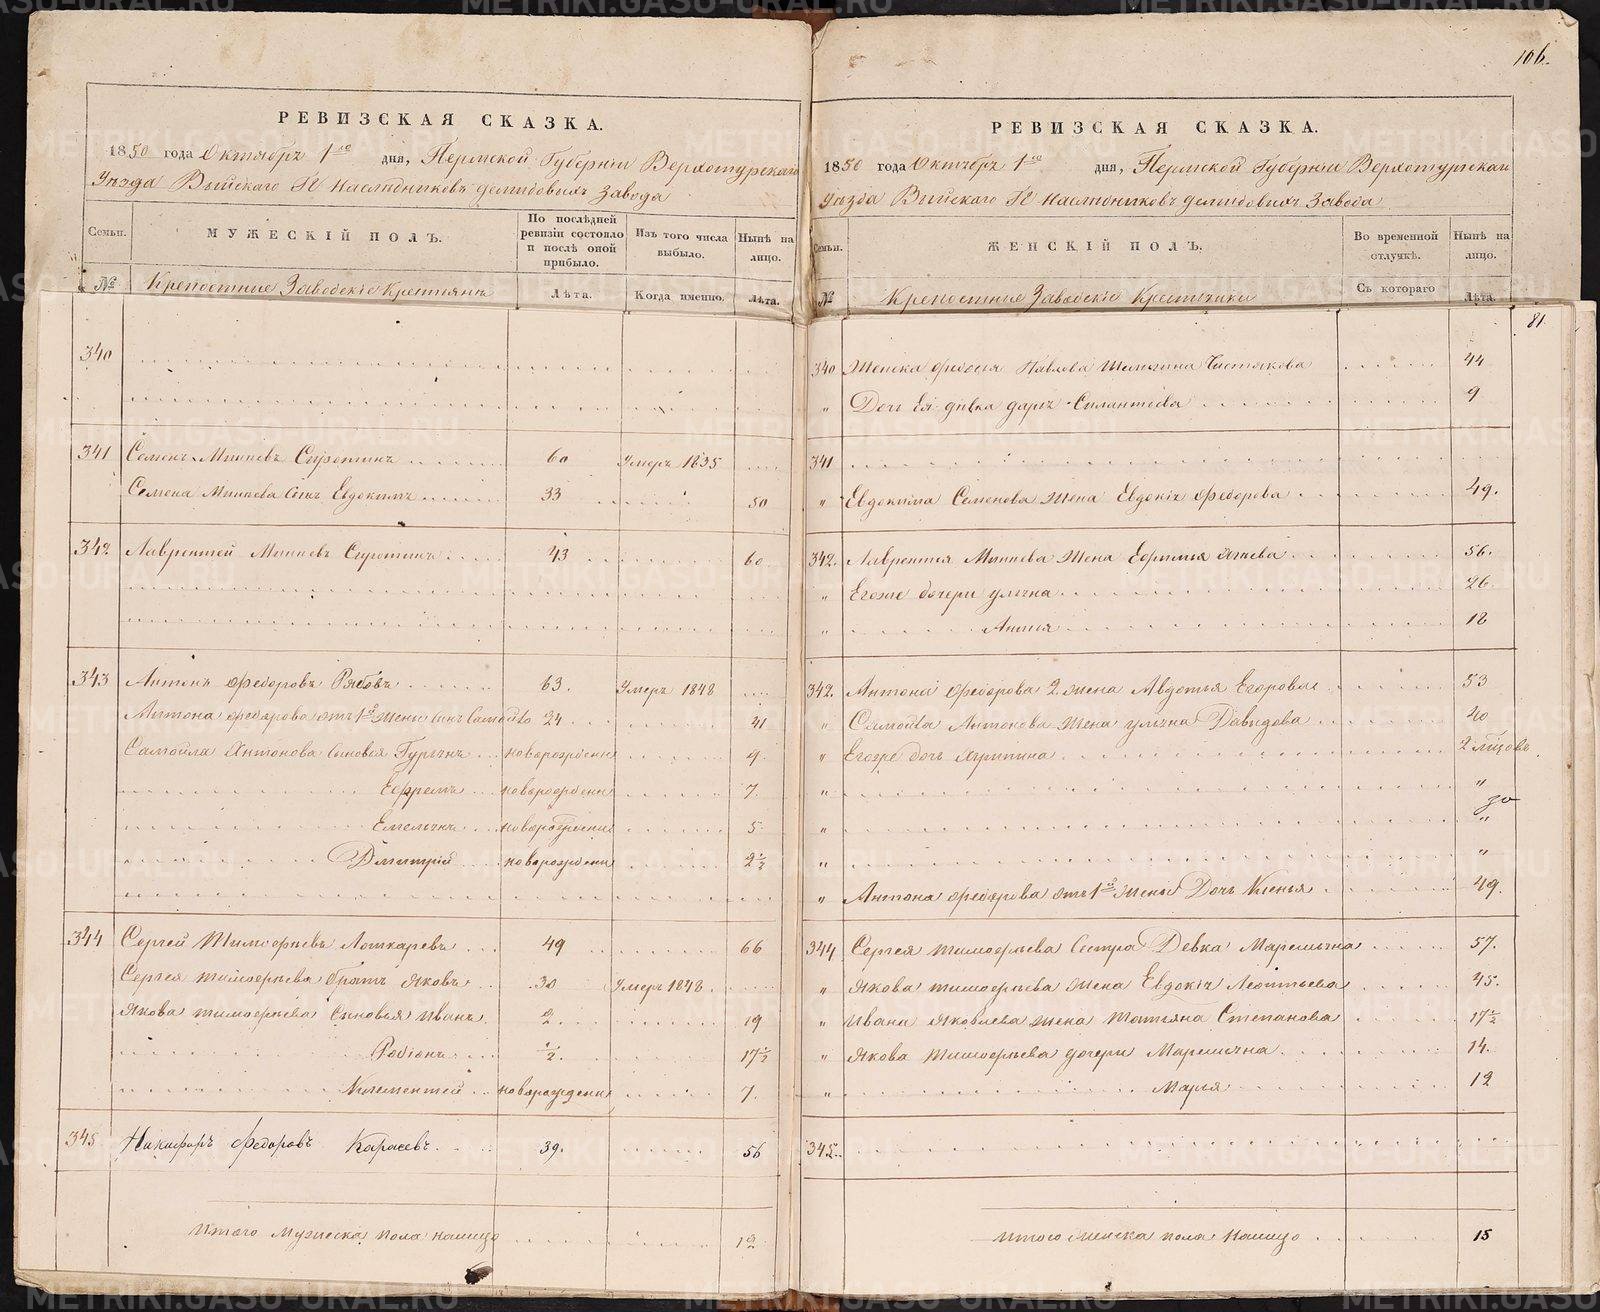 106.
РЕВИЗСКАЯ СКАЗКА.
1850 года Октября 1го дня, Пермской Губерніи Верхотурскаго
Уѣзда Выйскаго Гг наслѣдниковъ Демидовыхъ Завода
Семьи. МУЖЕСКІЙ ПОЛЪ. По послѣдней ревизіи состояло и послѣ оной прибыло. Изъ того числа выбыло. Нынѣ на лицо.
№ Крепостные Заводскіе Крестьяне Лѣта. Когда именно. Лѣта.
340
341 Семенъ Минѣевъ Сиротинъ 60 Умеръ 1835
Семена Минѣева Сынъ Евдокимъ 33 50
342 Лаврентей Минѣевъ Сиротинъ 43 60
343 Антонъ Федоровъ Рябовъ 63. Умеръ 1848
Антона Федорова отъ 1й жены сынъ Самойло 24 41
Самойла Антонова Сыновья Гурьянъ новорожденн 9
Ефремъ новорожденн 7.
Емельянъ новорожденн 5
Дмитрій новорожденн 2½
344 Сергей Тимофѣевъ Лошкаревъ 49 66
Сергея Тимофѣева братъ Яковъ 30 Умеръ 1848
Якова Тимофѣева Сыновья Иванъ 2 19
Родіонъ ½. 17½
Клементей новорожденн 7.
345 Никифоръ Федоровъ Карасевъ 39. 56
Итого Мужеска пола налицо 12
РЕВИЗСКАЯ СКАЗКА.
1850 года Октября 1го дня, Пермской Губерніи Верхотурскаго
Уѣзда Выйскаго Гг наслѣдниковъ Демидовыхъ Завода
Семьи. ЖЕНСКІЙ ПОЛЪ. Во временной отлучкѣ. Нынѣ на лицо.
№ Крепостные Заводскіе Крестьянки Съ котораго Лѣта.
81
340 Женка Федосья Павлова Чистякова 44
" Дочь Ея дѣвка Дарья Силантиева 9
341
" Евдокима Семенова жена Евдокія Федорова 49.
342. Лаврентья Минѣева жена Ефимья 56.
" Егоже дочери Ульяна 26.
" Анисья 18
342. Антона Федорова 2 жена Авдотья Егорова 53
" Самойла Антонова жена Ульяна Давидова 40
" Егоже дочь Агрипина 2
" "
" "
" "
" Антона Федорова отъ 1й жены Дочь Ксенья 49.
344 Сергея Тимофѣева Сестра Девка Маремьяна 57.
" Якова Тимофѣева жена Евдокія Леонтьева 45.
" Ивана Яковлева жена Татьяна Степанова 17½
" Якова Тимофѣева дочери Маремьяна 14.
" Марья 12
345
Итого Женска пола налицо 15
METRIKI.GASO-URAL.RU